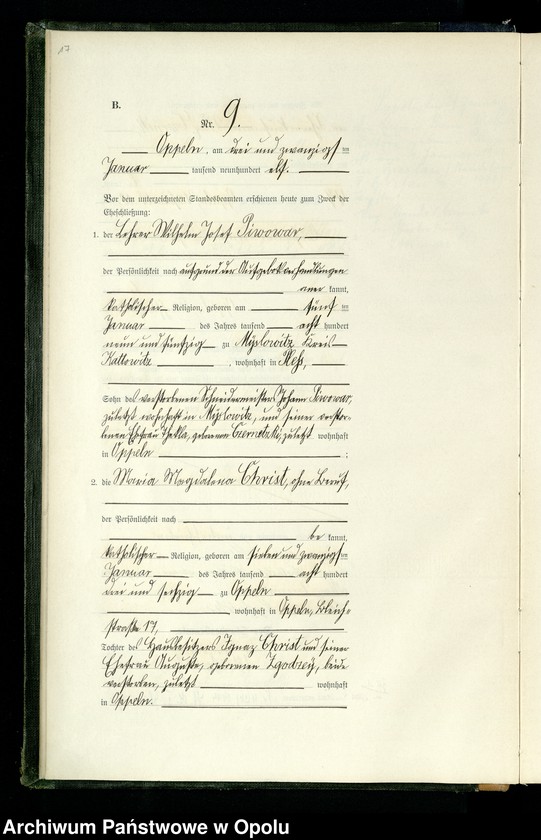 17
B.
Nr. 9.
Oppeln, am drei und zwanzigsten
Januar tausend neunhundert elf.
Vor dem unterzeichneten Standesbeamten erschienen heute zum Zweck der
Eheschließung:
1. der Lehrer Wilhelm Josef Piwowar,
der Persönlichkeit nach aufgrund der Aufgebotsverhandlungen
aner kannt,
katholischer Religion, geboren am fünften
Januar des Jahres tausend acht hundert
neun und fünfzig zu Myslowitz Kreis
Kattowitz, wohnhaft in Pleß,
Sohn des verstorbenen Schneidermeisters Johann Piwowar,
zuletzt wohnhaft in Myslowitz, und seiner verstor-
benen Ehefrau Thekla, geborenen zuletzt wohnhaft
in Oppeln;
2. die Maria Magdalena Christ, ohne Beruf,
der Persönlichkeit nach
be kannt,
katholischer Religion, geboren am sieben und zwanzigsten
Januar des Jahres tausend acht hundert
drei und sechzig zu Oppeln
, wohnhaft in Oppeln, Bleich-
straße 17,
Tochter des Hausbesitzers Ignaz Christ und seiner
Ehefrau Auguste, geborenen beide
verstorben, zuletzt wohnhaft
in Oppeln.
Archiwum Państwowe w Opolu